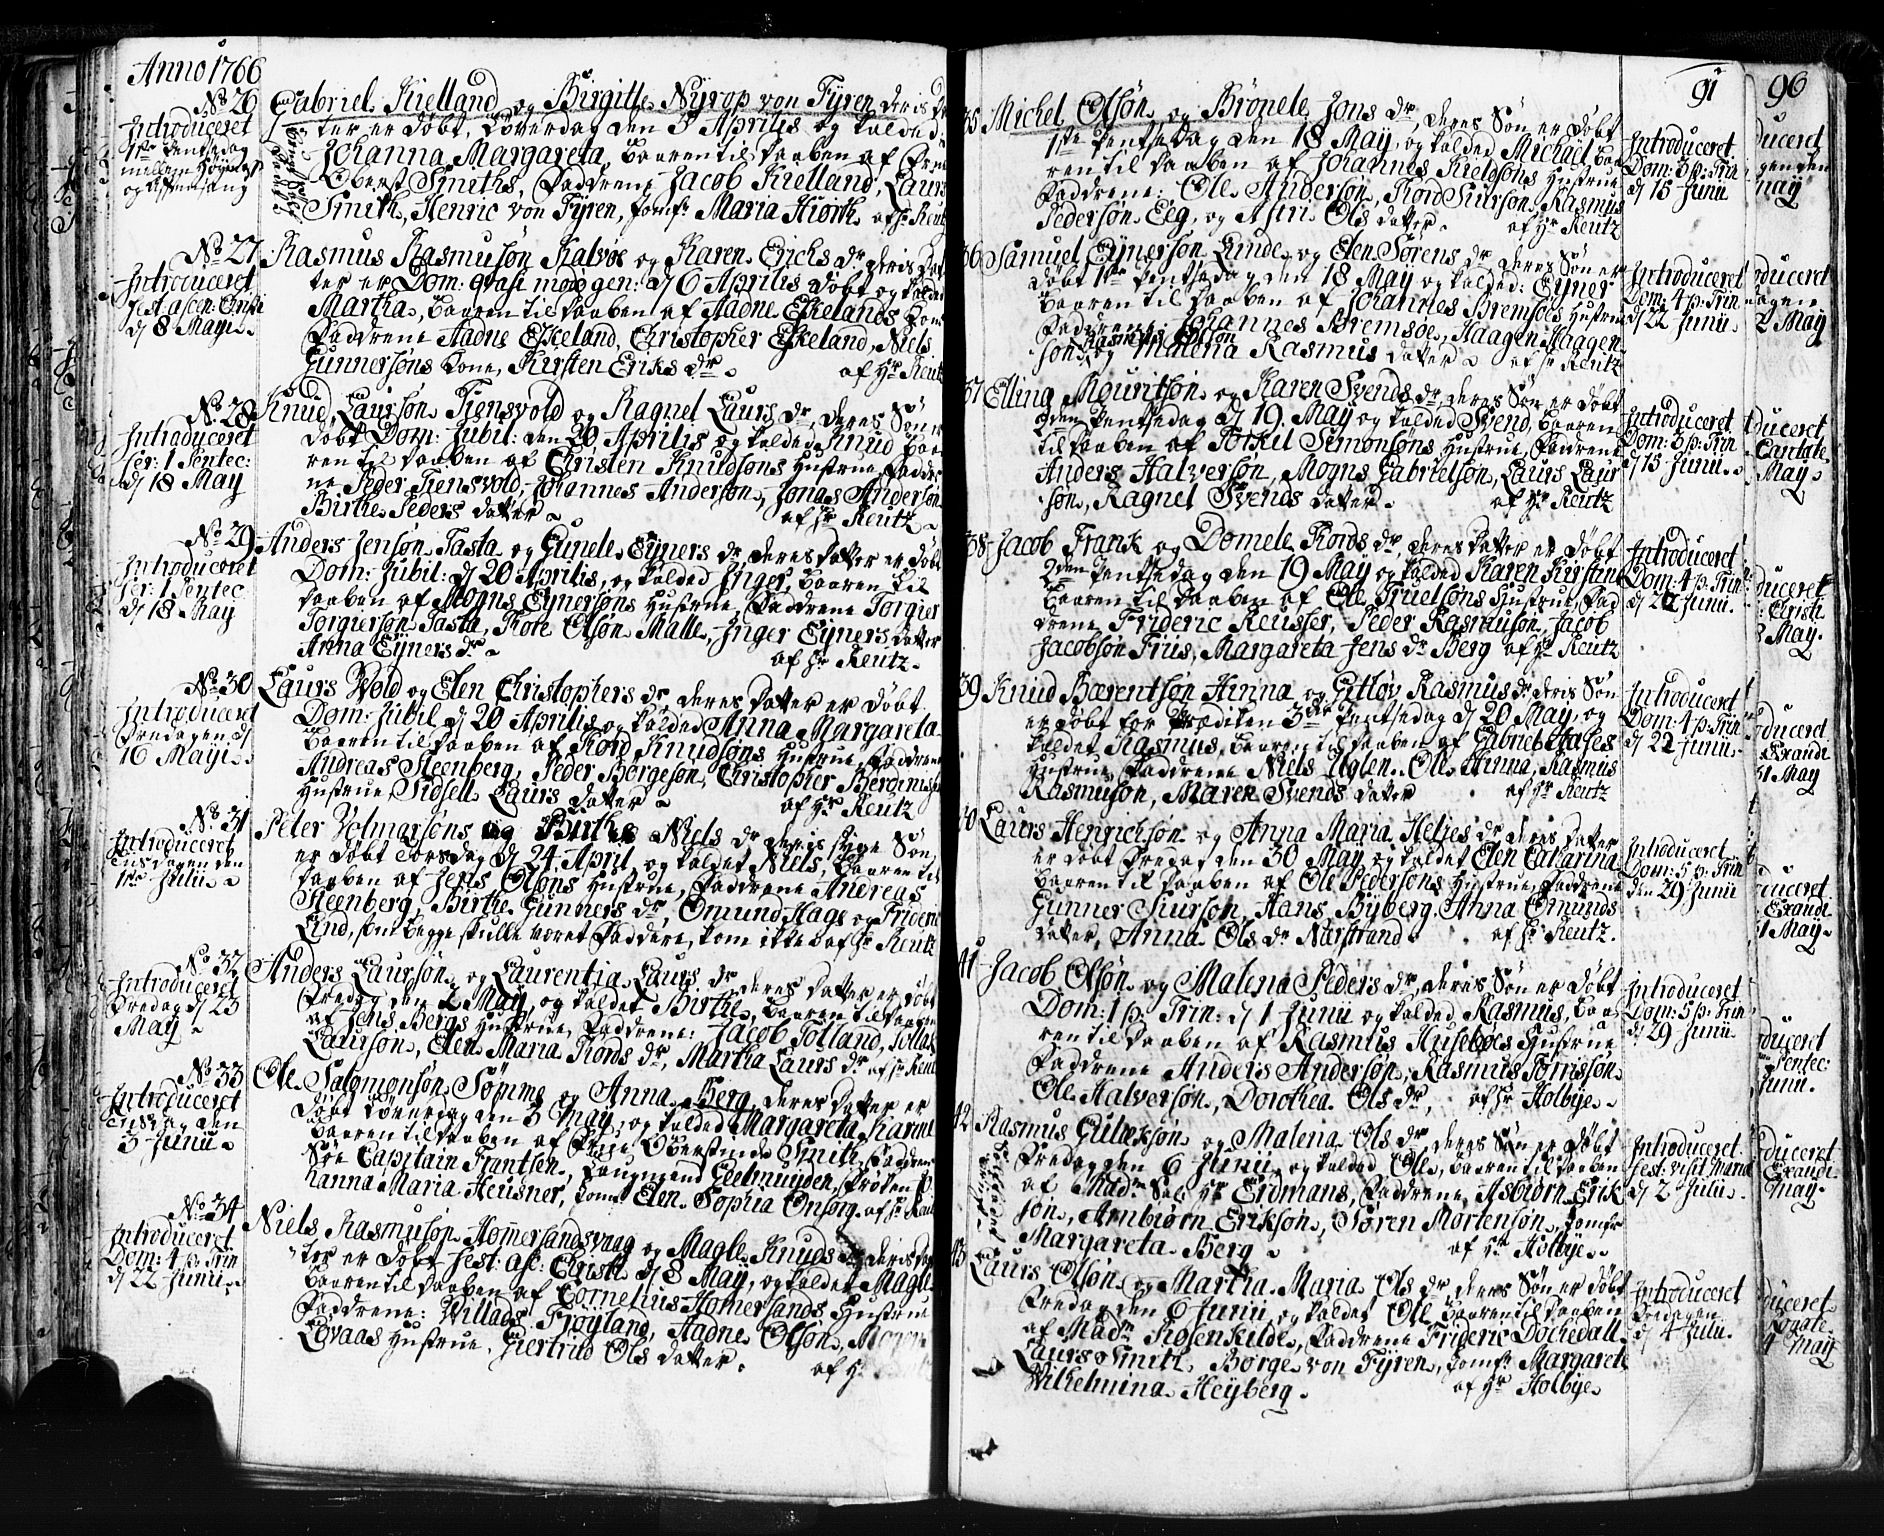 Anno 1766
No 26
Introduceret
1ste Pentsedag
mellem Høymess
og Aftensang
Gabriel Kielland og Birgitte Nyrop von Fyren deris Dat
ter er døbt, Løverdag den 5 Aprilis og kalded
Johanna Margareta, baaren til daaben af Frue
Oberst Smiths, Faddrene Jacob Kielland, Laurs
Smith, Henric von Fyren, Jomfr Maria Hiorth af Hr Reutz
No 27
Introduceret
fest ascen: Christi
d 8 Mayi
Rasmus Rasmusøn Kalvøe og Karen Erichs dr deris Dat
ter er Dom: qvasi modogen: d 6 Aprilis døbt og kaldet
Martha, baaren til daaben af Aadne Eskelands Kone
Faddrene Aadne Eskeland, Christopher Eskeland, Niels
Gunnersøns Kone, Kirsten Eriks dr af Hr Reutz
No 28
Introduceret
fer: 1 Pentec:
d 18 May
Knud Laursøn Tiensvold og Ragnel Laurs dr, deres Søn er
døbt Dom: Jubil: den 20 Aprilis og kaldet Knud baa
ren til daaben af Christen Knudsøns Hustrue, Faddre
ne Peder Tiensvold, Johannes Andersøn, Jonas Andersøn
Birthe Peders datter af Hr Reutz
No 29
Introduceret
fer: 1 Pentec
d 18 May
Anders Jensøn Tasta og Gunele Eyners dr, deres datter er døbt
Dom: Jubil: d 20 Aprilis, og kaldet Inger baaren til
daaben af Mogns Eynersøns Hustrue, Faddrene Torgier
Torgiersøn Tasta, Tore Olsøn Malle, Inger Eyners datter
Anna Eyners dr af Hr Reutz
No 30
Introduceret
Fredagen d
16 Mayi
Laurs Vold og Elen Christophers dr, deres datter er døbt
Dom: Jubil d 20 Aprilis og kaldet Anna Margareta
baaren til daaben af Tord Knudsøns Hustrue, Faddrene
Andreas Steenberg, Peder Børgesøn, Christopher
Hustrue, Sidsell Laurs datter af Hr Reutz
No 31
Introduceret
Tirsdagen den
1ste Julii
Peter Volmarsøns og Birthe Niels dr deris syge Søn
er døbt Torsdag d 24 April og kaldet Niels, baaren til
daaben af Jens Olsøns Hustrue, Faddrene Andreas
Steenberg, Birthe Gunners dr, Omund Hage og Frideric
Lind, som begge skulle været Faddere, kom ikke af Hr Reutz
No 32
Introduceret
Fredag d 23
May
Anders Laursøn og Laurentia Laurs dr deres datter er døbt
Fredag den 2 May, og kaldet Birthe, baaren til daaben
af Jens Bergs Hustrue, Faddrene: Jacob Totland, Tollak
Laursøn, Elen Maria Tords dr, Martha Laurs dr af Hr Reutz
No 33
Introduceret
Tirsdag den
3 Junii
Ole Salomonsøn Sømme og Anna Berg, deres datter er
døbt Løverdag den 3 May, og kaldet Margareta Karine
baaren til daaben af Frue Oberstinde Smith, Faddre
ne Capitain Frantsen, Laugmand Eeelmuyden, Frøken
hanna Maria Heusner, Jomf. Elen Sophia Onsorg af Hr Reutz
No 34
Introduceret
Dom: 4 p. Trin
d 22 Junii
Niels Rasmusøn Homersandsvaag og Magle Knuds dr deris dat
ter er døbt fest: asc: Christi d 8 May, og kaldet Magle
baaren til daaben af Cornelius Homersands Hustrue
Faddrene: Villads Frøyland, Aadne Olsøn, Mogns
Lovaas Hustrue, Giertrud Ols datter. af Hr
91
35 Michel Olsøn og Brønele Jons dr, deres Søn er døbt
1ste Pentsedag den 18 May, og kaldet Michael baa
ren til daaben af Johannes Kieldsøns Hustrue
Faddrene: Ole Andersøn, Tord Siursøn, Rasmus
Pedersøn Eeg, og Astri Ols datter af Hr Reutz
Introduceret
Dom: 3 p: Trin
d 15 Junii
36 Samuel Eynersøn Linde og Elen Sørens dr deres Søn er
døbt 1ste Pentsedag den 18 May og kaldet: Eyner
baaren til daaben af Johannes Bremsøes Hustrue
Faddrene: Johannes Bremsøe, Haagen Haagen
Rasmus Olsøn
søn og Malena Rasmus datter af Hr Reutz
Introduceret
Dom: 4 p: Trin
d 22 Junii
37 Elling Mouritsøn og Karen Svends dr, deres Søn er døbt
2den Pentsedag d 19. May og kaldet Svend, baaren
til daaben af Torkil Simonsøns Hustrue, Faddrene
Anders Halversøn, Mogns Gabrielsøn, Laurs Laur
søn, Ragnel Svends datter. af Hr Reutz
Introduceret
Dom: 3 p: Trin
d 15 Junii
38 Jacob Frank og Domele Tords dr deres datter er døbt
2den Pentsedag den 19 May og kaldet Karen Kirstine
baaren til daaben af Ole Truelsøns Hustrue, Fad
drene Frideric Reusser, Peder Rasmusøn, Jacob
Jacobsøn Friis, Margareta Jens dr Berg af Hr Reutz
Introduceret
Dom: 4 p: Trin
d 22 Junii
39 Knud Bærentsøn Hinna og Gitløv Rasmus dr deris Søn
er døbt for Prædiken 3die Pentsedag d 20 May, og
kaldet Rasmus, baaren til daaben af Gabriel Hages
Hustrue, Faddrene Niels Uglen, Ole Hinna, Rasmus
Rasmusøn, Maren Svends datter af Hr Reutz
Introduceret
Dom: 4 p: Trin
d 22 Junii
40 Laurs Henrichsøn og Anna Maria Heljes dr deris datter
er døbt Fredag den 30 May, og kaldet Elen Catharina
baaren til daaben af Ole Pedersøns Hustrue, Faddrene
Gunner Siursøn, Hans Byberg, Anna Omunds
datter, Anna Ols dr Nærstrand af Hr Reutz.
Introduceret
Dom: 5 p: Trin
den 29 Junii
41 Jacob Olsøn og Malena Peders dr, deres Søn er døbt
Dom: 1 p: Trin: d 1 Junii og kaldet Rasmus, baa
ren til daaben af Rasmus Husebøes Hustrue
Faddrene Anders Andersøn, Rasmus Torrissøn
Ole Halversøn, Dorothea Ols dr, af Hr Holbye
Introduceret
Dom: 5 p: Trin
d 29 Junii
42 Rasmus Gulicksøn og Malena Ols dr, deres Søn er døbt
Fredag den 6 Junii, og kaldet Ole, baaren til daaben
af Madm Sal Hr Erdmans, Faddrene, Asbiørn Erik
søn, Arnbiørn Eriksøn, Søren Mortensøn, Jomfr
Margareta Berg af Hr Holbye
Introduceret
fest: visit Mariæ
d 2 Julii
43 Laurs Olsøn og Martha Maria Ols dr, deres Søn er døbt
Fredag den 6 Junii og kaldet Ole baaren til daaben
af Madm Rosenkilde, Faddrene Frideric Dockedall
Laurs Smith, Børge von Fyren, Jomfr Margareta
Wilhelmina Heyberg. af Hr Holbye
Introduceret
Fredagen
d 4 Julii
96
duceret
gen den
may
oduceret
dagen
2 May
duceret
Cantate
May
duceret
Christi
8 May
duceret
Exaudi
1 May
duceret
Exaudi
1 May
duceret
Pentec
Junii
duceret
Exaudi
May
duceret
Rogate
4 May